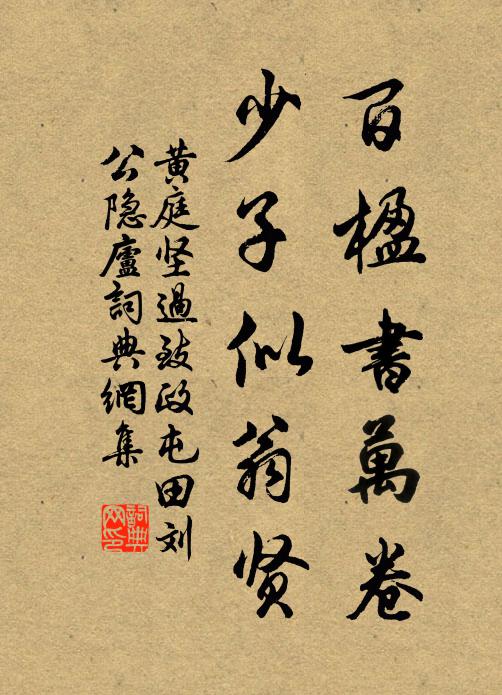 百楹書萬卷
少子似翁贤
黄庭坚過致政屯田刘
公隐廬詞典網集
詞典网印